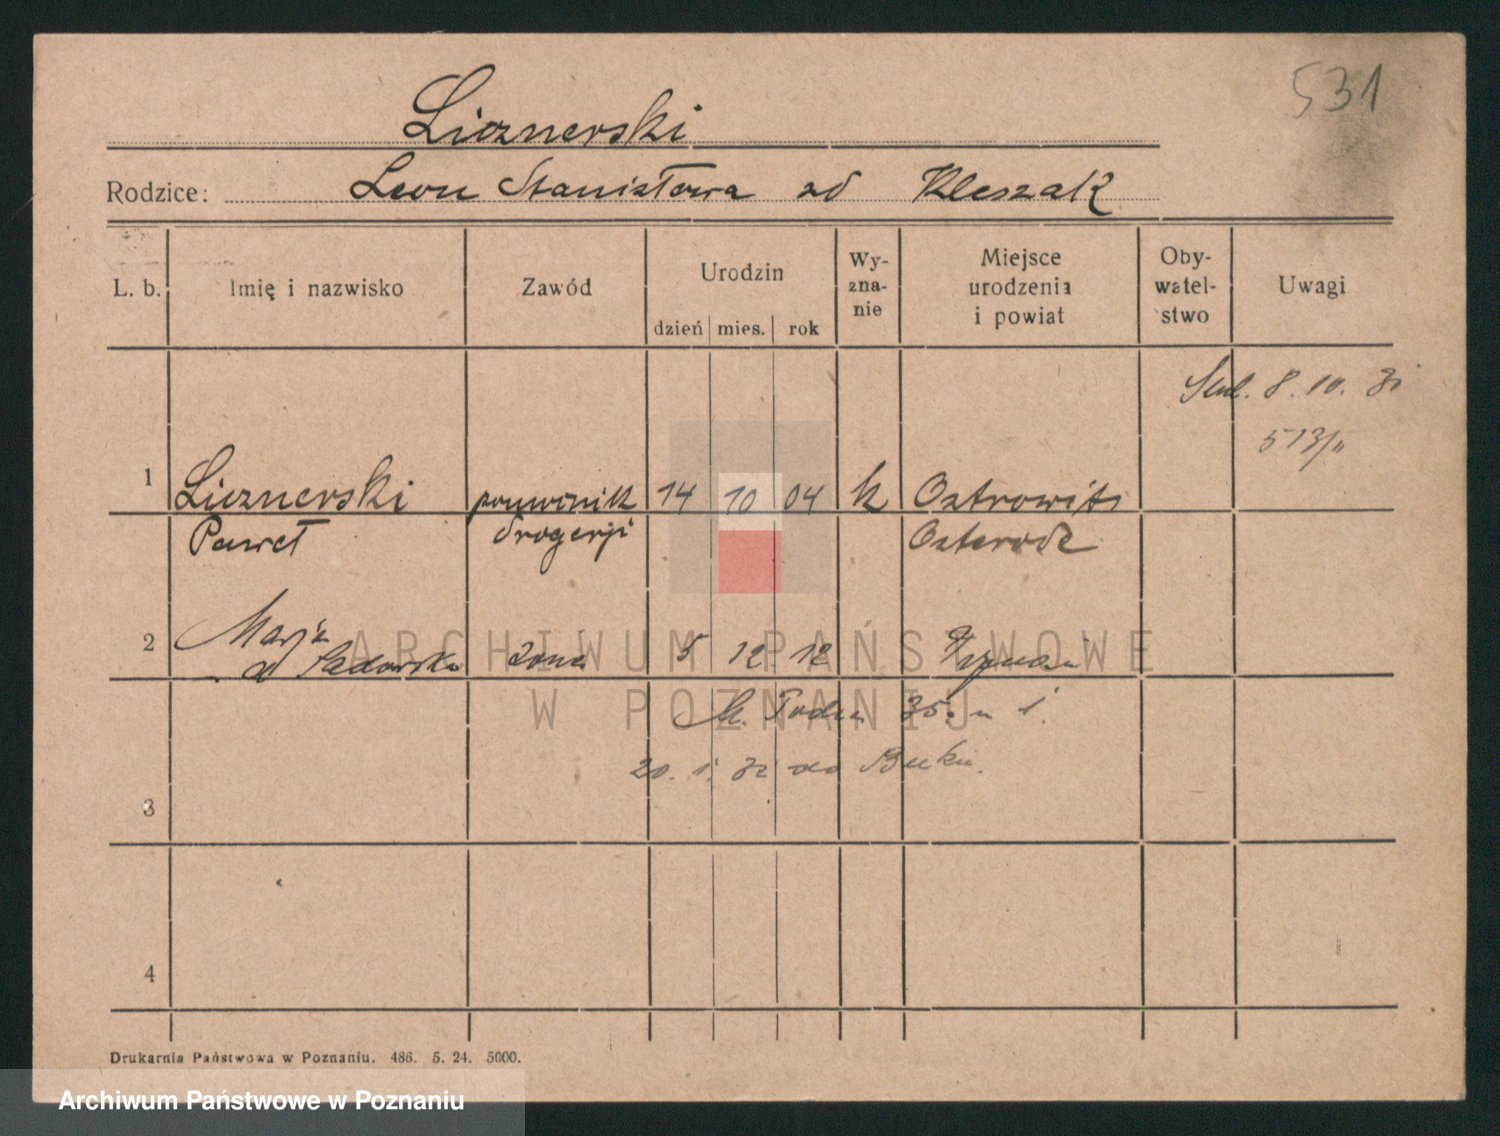 531
Licznerski
Rodzice: Leon Stanisława zd Kleszak
L. b. Imię i nazwisko Zawód Urodzin dzień mies. rok Wy-zna-nie Miejsce urodzenia i powiat Oby-watel-stwo Uwagi
8. 10. 31
513/
1 Licznerski pomocnik 14 10 04 k Ostrowite
Paweł drogerji Osterode
2 Marja żona 5 12 12 Poznań
d Sadowska
35 m 1.
20. 1. 32 do Buku.
3
4
Drukarnia Państwowa w Poznaniu. 486. 5. 24. 5000.
ARCHIWUM PAŃSTWOWE
W POZNANIU
Archiwum Państwowe w Poznaniu